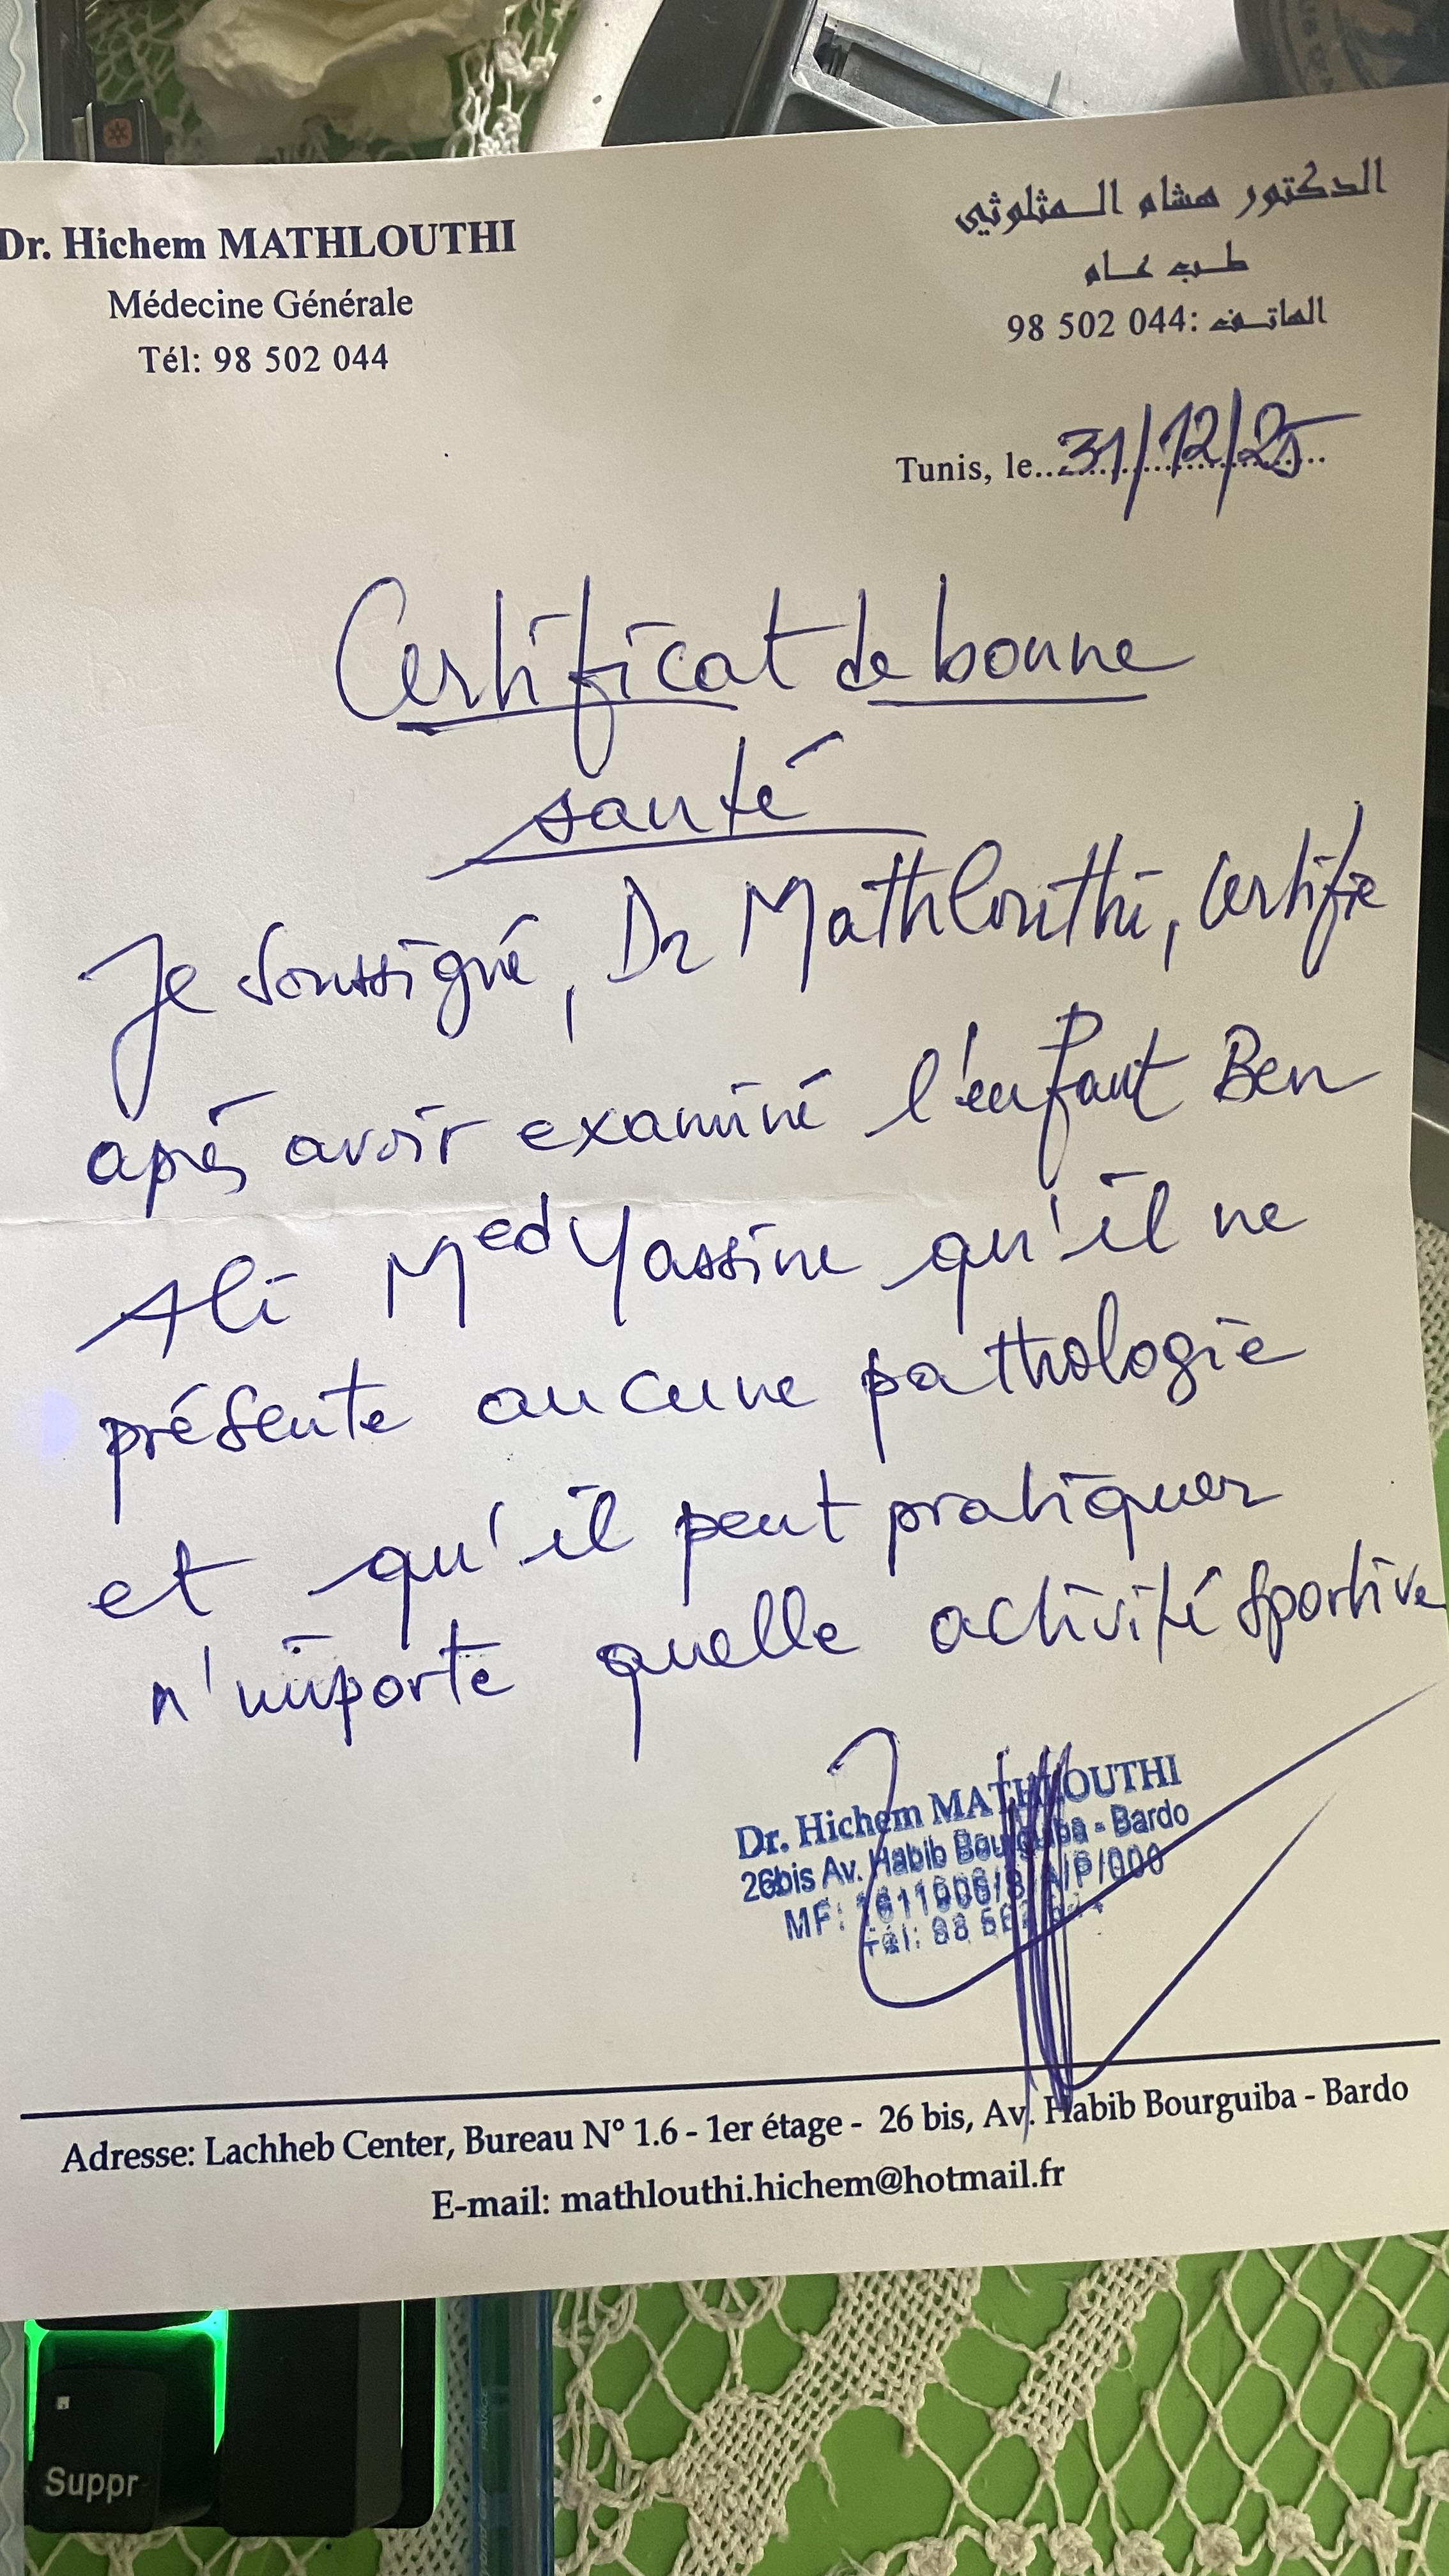 Dr. Hichem MATHLOUTHI
Médecine Générale
Tél: 98 502 044
الدكتور هشام المثلوثي
طب عام
الهاتف: 98 502 044
Tunis, le 31/12/25
Certificat de bonne
santé
Je soussigné, Dr Mathlouthi, certifie
après avoir examiné l'enfant Ben
Ali Med Yassine qu'il ne
présente aucune pathologie
et qu'il peut pratiquer
n'importe quelle activité sportive
Dr. Hichem MATHLOUTHI
26bis Av. Habib Bourguiba - Bardo
MF:
Tél:
Adresse: Lachheb Center, Bureau N° 1.6 - 1er étage - 26 bis, Av. Habib Bourguiba - Bardo
E-mail: mathlouthi.hichem@hotmail.fr
Suppr